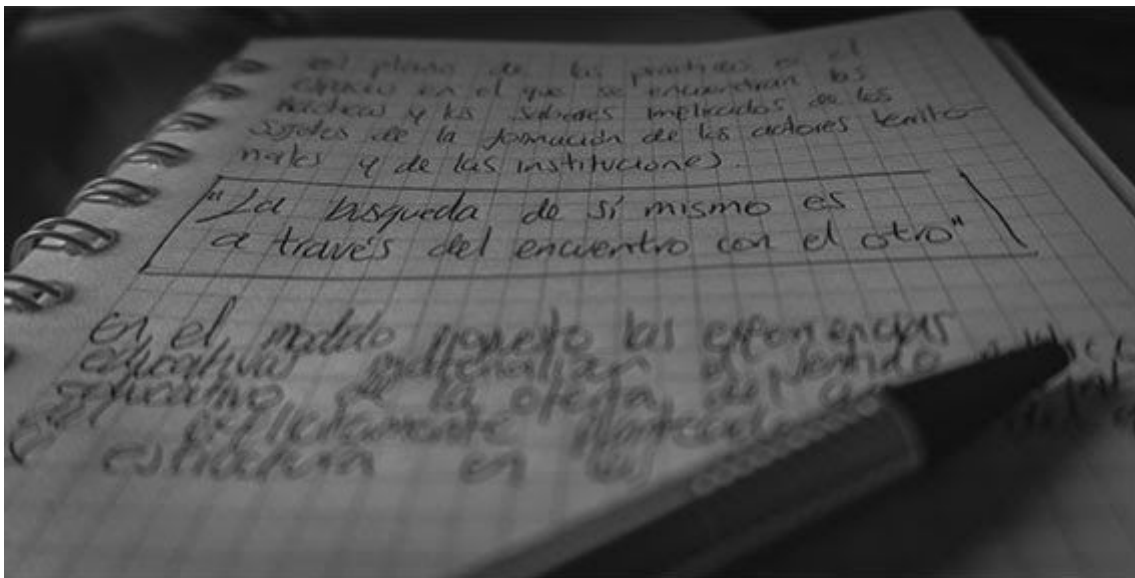 el plano de las prácticas es el
espacio en el que se encuentran las
prácticas y los saberes implicados de los
sujetos de la formación de los actores territo-
riales y de las instituciones.
"La búsqueda de sí mismo es
a través del encuentro con el otro"
en el modelo propuesto las experiencias
educativas materializan el sentido
educativo de la oferta del
explícitamente
estructura en